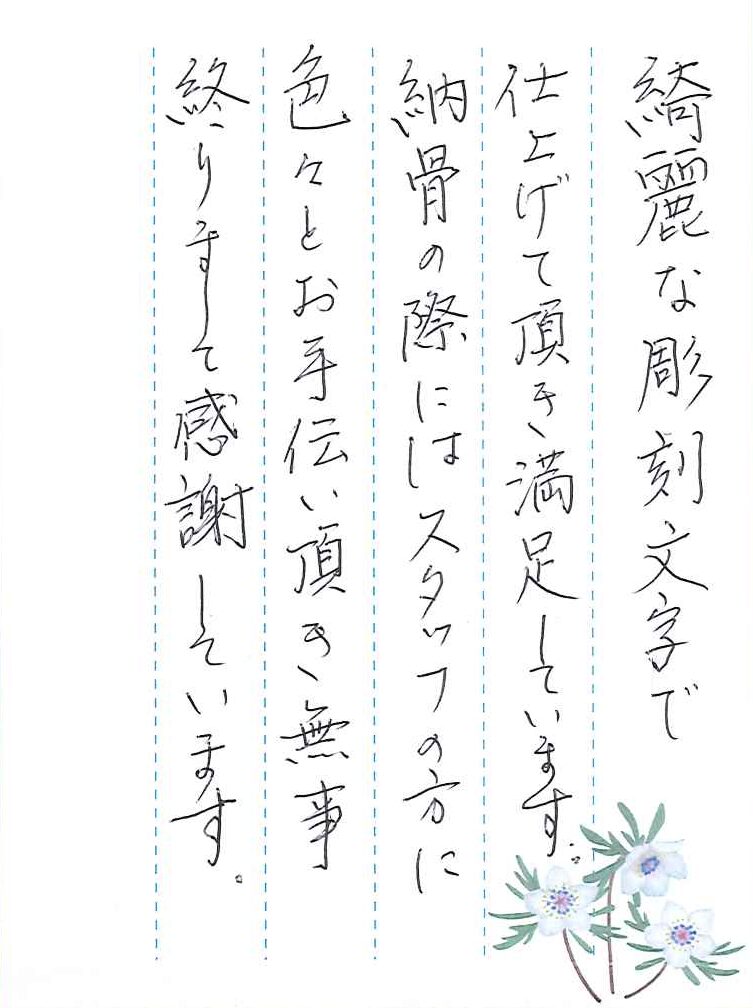 綺麗な彫刻文字で
仕上げて頂き満足しています。
納骨の際にはスタッフの方に
色々とお手伝い頂き無事
終りまして感謝しています。